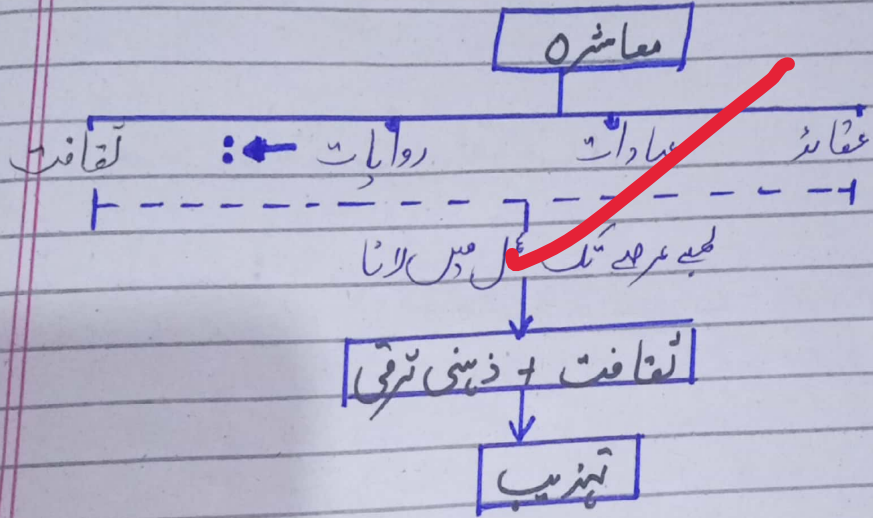 معاشرہ
عقائد عبادات روایات ← : ثقافت
لمبے عرصے تک عمل میں لانا
ثقافت + ذہنی ترقی
تہذیب